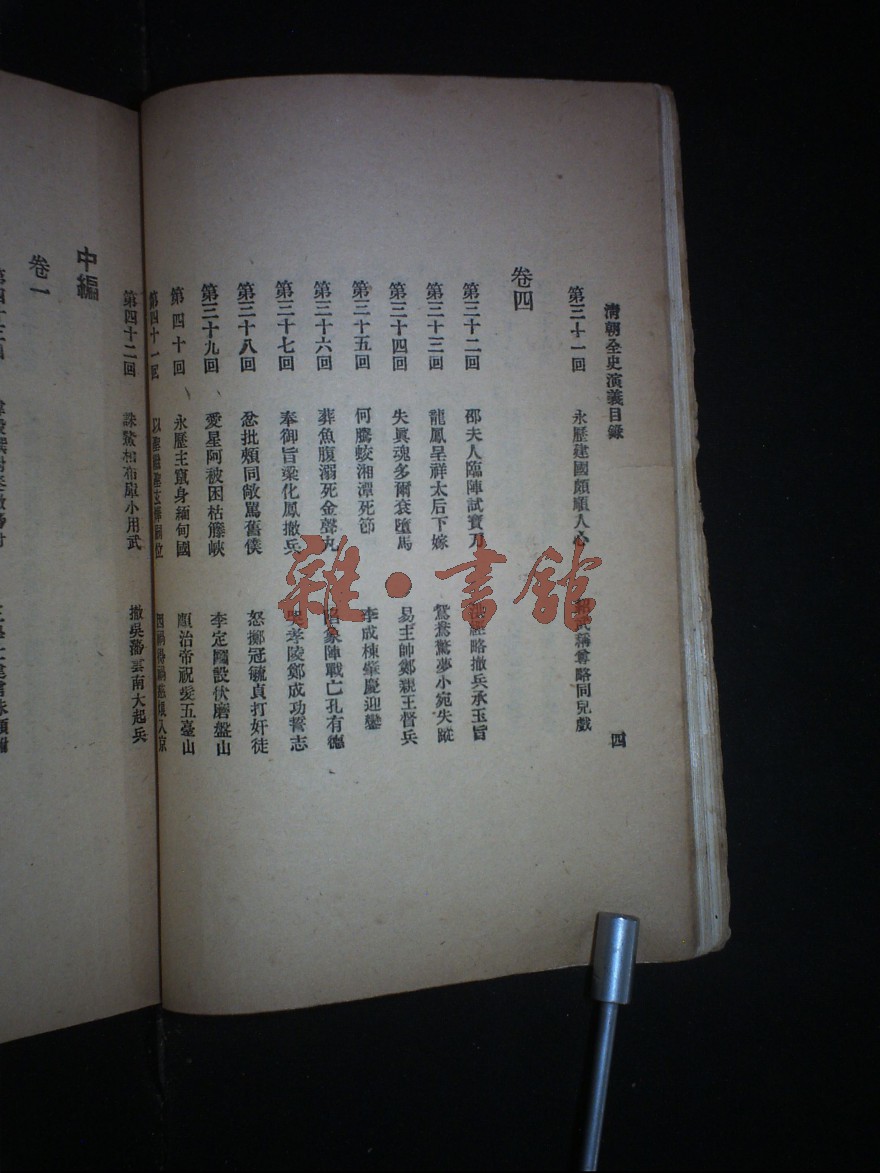 清朝全史演義目錄
四
第三十一回 永歷建國頗順人心 稱尊略同兒戲
卷四
第三十二回 邵夫人臨陣試寶刀 經略撤兵承玉旨
第三十三回 龍鳳呈祥太后下嫁 鴛鴦驚夢小宛失蹤
第三十四回 失興魂多爾袞墮馬 易主帥鄭親王督兵
第三十五回 何騰蛟湘潭死節 李成棟肇慶迎鑾
第三十六回 葬魚腹溺死金聲 象陣戰亡孔有德
第三十七回 奉御旨梁化鳳撤兵 哭孝陵鄭成功誓志
第三十八回 忿批頰同敵罵舊僕 怒擲冠毓貞打奸徒
第三十九回 愛星阿被困枯籐峽 李定國設伏磨盤山
第四十回 永歷主竄身緬甸國 順治帝祝髮五臺山
第四十一回
第四十二回 誅鰲相布庫小用武 撤吳藩雲南大起兵
中編
卷一
雜·書館